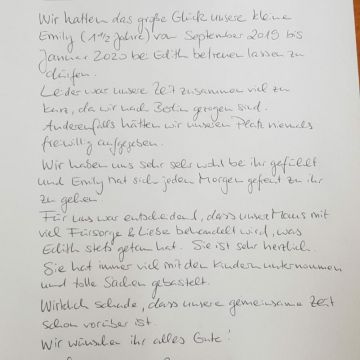 Wir hatten das große Glück unsere kleine
Emily (1 1/2 Jahre) von September 2019 bis
Januar 2020 bei Edith betreuen lassen zu
dürfen.
Leider war unsere Zeit zusammen viel zu
kurz, da wir nach Berlin gezogen sind.
Anderenfalls hätten wir unseren Platz niemals
freiwillig aufgegeben.
Wir haben uns sehr sehr wohl bei ihr gefühlt
und Emily hat sich jeden Morgen gefreut zu ihr
zu gehen.
Für uns war entscheidend, dass unser Maus mit
viel Fürsorge & Liebe behandelt wird, was
Edith stets getan hat. Sie ist sehr herzlich.
Sie hat immer viel mit den Kindern unternommen
und tolle Sachen gebastelt.
Wirklich schade, dass unsere gemeinsame Zeit
schon vorüber ist.
Wir wünschen ihr alles Gute!